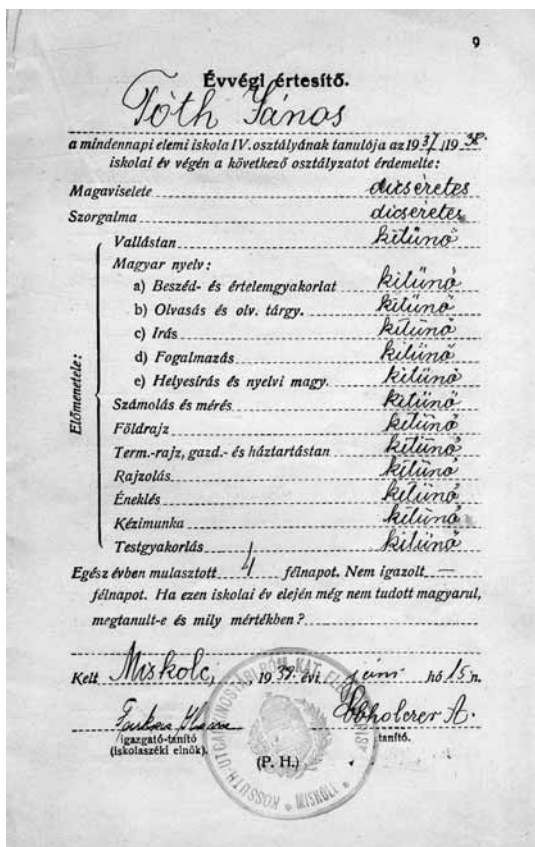 9
Évvégi értesítő.
Tóth János
a mindennapi elemi iskola IV. osztályának tanulója az 1937/1938.
iskolai év végén a következő osztályzatot érdemelte:
Magaviselete dicséretes
Szorgalma dicséretes
Előmenetele:
Vallástan kitünő
Magyar nyelv:
a) Beszéd- és értelemgyakorlat kitünő
b) Olvasás és olv. tárgy. kitünő
c) Irás kitünő
d) Fogalmazás kitünő
e) Helyesírás és nyelvi magy. kitünő
Számolás és mérés kitünő
Földrajz kitünő
Term.-rajz, gazd.- és háztartástan kitünő
Rajzolás kitünő
Éneklés kitünő
Kézimunka kitünő
Testgyakorlás kitünő
Egész évben mulasztott 4 félnapot. Nem igazolt —
félnapot. Ha ezen iskolai év elején még nem tudott magyarul,
megtanult-e és mily mértékben?
Kelt Miskolc, 1938. évi jún. hó 15 n.
A.
igazgató-tanító tanító.
(iskolaszéki elnök).
(P. H.)
KOSSUTH-UTCAI RÓM. KAT. MISKOLC